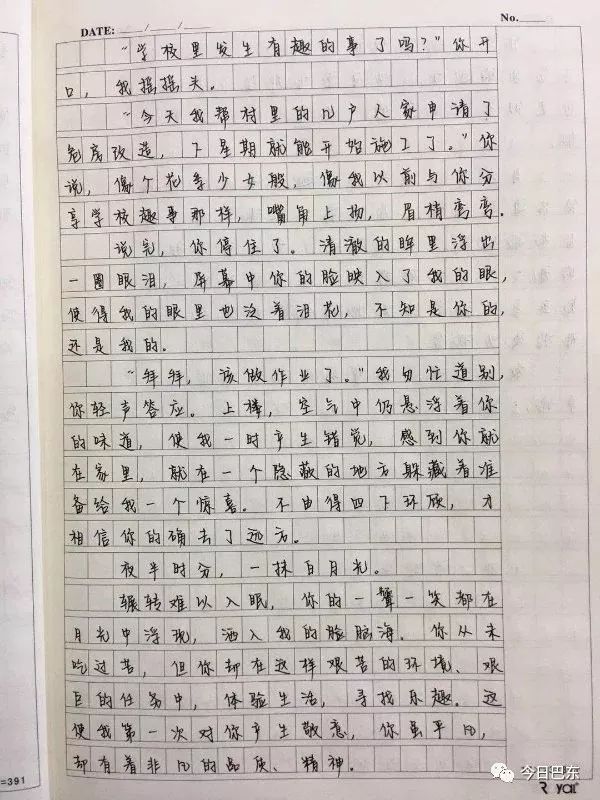 DATE: / /
No.
“学校里发生有趣的事了吗？”你开
口，我摇摇头。
“今天我帮村里的几户人家申请了
危房改造，下星期就能开始施工了。”你
说，像个花季少女般，像我以前与你分
享学校趣事那样，嘴角上扬，眉梢弯弯。
说完，你停住了。清澈的眸里浮出
一圈眼泪，屏幕中你的脸映入了我的眼，
使得我的眼里也泛着泪花，不知是你的，
还是我的。
“拜拜，该做作业了。”我匆忙道别，
你轻声答应。上楼，空气中仍悬浮着你
的味道，使我一时产生错觉，感到你就
在家里，就在一个隐蔽的地方躲藏着准
备给我一个惊喜。不由得四下环顾，才
相信你的确去了远方。
夜半时分，一抹白月光。
辗转难以入眠，你的一颦一笑都在
月光中浮现，洒入我的脸脑海。你从未
吃过苦，但你却在这样艰苦的环境、艰
巨的任务中，体验生活，寻找乐趣。这
使我第一次对你产生敬意，你虽平凡，
却有着非凡的品质、精神。
=391
今日巴东